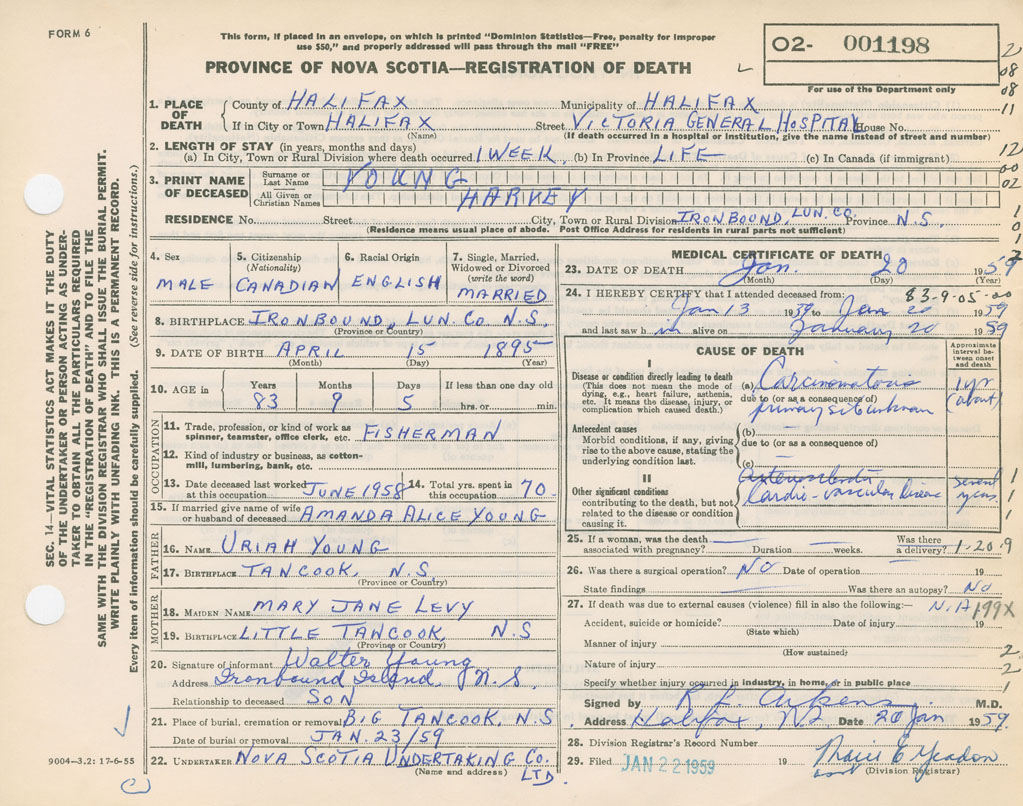 FORM 6
This form, if placed in an envelope, on which is printed "Dominion Statistics—Free, penalty for improper
use $50," and properly addressed will pass through the mail "FREE"
O2- 001198
For use of the Department only
PROVINCE OF NOVA SCOTIA—REGISTRATION OF DEATH
1. PLACE OF DEATH County of HALIFAX Municipality of HALIFAX
If in City or Town HALIFAX Street VICTORIA GENERAL HOSPITAL House No.
(Name) (If death occurred in a hospital or institution, give the name instead of street and number)
2. LENGTH OF STAY (in years, months and days)
(a) In City, Town or Rural Division where death occurred 1 WEEK, (b) In Province LIFE (c) In Canada (if immigrant)
3. PRINT NAME OF DECEASED
Surname or Last Name YOUNG
All Given or Christian Names HARVEY
RESIDENCE No. Street City, Town or Rural Division IRONBOUND, LUN. CO. Province N.S.
(Residence means usual place of abode. Post Office Address for residents in rural parts not sufficient)
4. Sex MALE
5. Citizenship (Nationality) CANADIAN
6. Racial Origin ENGLISH
7. Single, Married, Widowed or Divorced (write the word) MARRIED
8. BIRTHPLACE IRONBOUND, LUN. CO. N.S.
(Province or Country)
9. DATE OF BIRTH APRIL 15 1895
(Month) (Day) (Year)
10. AGE in Years Months Days If less than one day old
83 9 5 hrs. or min.
OCCUPATION
11. Trade, profession, or kind of work as
spinner, teamster, office clerk, etc. FISHERMAN
12. Kind of industry or business, as cotton-
mill, lumbering, bank, etc.
13. Date deceased last worked at this occupation JUNE 1958 14. Total yrs. spent in this occupation 70
15. If married give name of wife or husband of deceased AMANDA ALICE YOUNG
FATHER
16. NAME URIAH YOUNG
17. BIRTHPLACE TANCOOK, N.S
(Province or Country)
MOTHER
18. MAIDEN NAME MARY JANE LEVY
19. BIRTHPLACE LITTLE TANCOOK, N.S
(Province or Country)
20. Signature of informant Walter Young
Address Ironbound Island, N.S.
Relationship to deceased SON
21. Place of burial, cremation or removal BIG TANCOOK, N.S
Date of burial or removal JAN. 23/59
22. UNDERTAKER NOVA SCOTIA UNDERTAKING CO. LTD.
(Name and address)
MEDICAL CERTIFICATE OF DEATH
23. DATE OF DEATH Jan. 20 1959
(Month) (Day)
24. I HEREBY CERTIFY that I attended deceased from: 83-9-05-00
Jan 13 1959 to Jan 20 1959
and last saw him alive on January 20 1959
CAUSE OF DEATH
Approximate interval between onset and death
I
Disease or condition directly leading to death
(This does not mean the mode of
dying, e.g., heart failure, asthenia,
etc. It means the disease, injury, or
complication which caused death.)
(a) Carcinomatous 1 yr (about)
due to (or as a consequence of)
primary site unknown
Antecedent causes
Morbid conditions, if any, giving
rise to the above cause, stating the
underlying condition last.
(b)
due to (or as a consequence of)
(c)
II
Other significant conditions
contributing to the death, but not
related to the disease or condition
causing it.
Cardio-vascular Disease several yrs.
25. If a woman, was the death associated with pregnancy? Duration weeks. Was there a delivery? 1-20-9
26. Was there a surgical operation? NO Date of operation 19
State findings Was there an autopsy? No
27. If death was due to external causes (violence) fill in also the following:— N.A 199X
Accident, suicide or homicide? Date of injury 19
(State which)
Manner of injury
(How sustained)
Nature of injury
Specify whether injury occurred in industry, in home, or in public place
Signed by M.D.
Address Halifax, NS Date 20 Jan 1959.
28. Division Registrar's Record Number
29. Filed JAN 22 1959
(Division Registrar)
SEC. 14—VITAL STATISTICS ACT MAKES IT THE DUTY
OF THE UNDERTAKER OR PERSON ACTING AS UNDER-
TAKER TO OBTAIN ALL THE PARTICULARS REQUIRED
IN THE "REGISTRATION OF DEATH" AND TO FILE THE
SAME WITH THE DIVISION REGISTRAR WHO SHALL ISSUE THE BURIAL PERMIT.
WRITE PLAINLY WITH UNFADING INK. THIS IS A PERMANENT RECORD.
Every item of information should be carefully supplied. (See reverse side for instructions.)
9004—3.2: 17-6-55
2
08
08
11
12
00
02
1
0
1
7
1
1
1
2
2
1